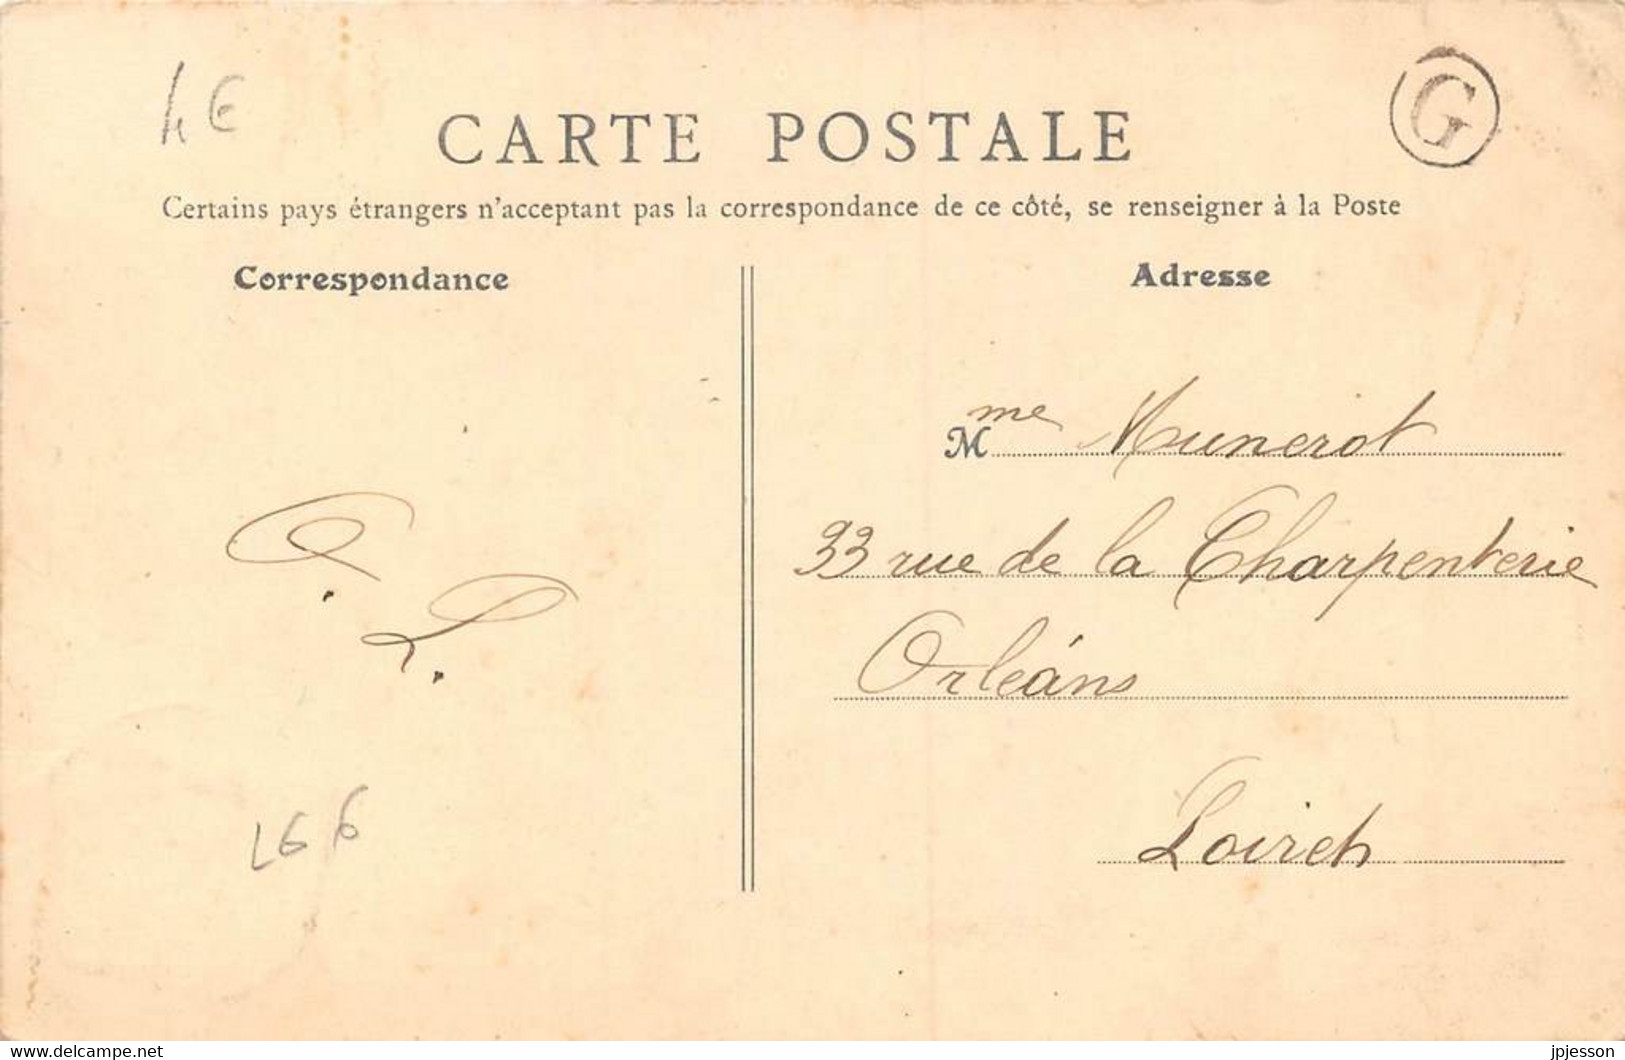 4€
CARTE POSTALE
G
Certains pays étrangers n'acceptant pas la correspondance de ce côté, se renseigner à la Poste
Correspondance
Adresse
Mme Munerot
33 rue de la Charpenterie
Orléáns
Loiret
L66
www.delcampe.net
jpjesson